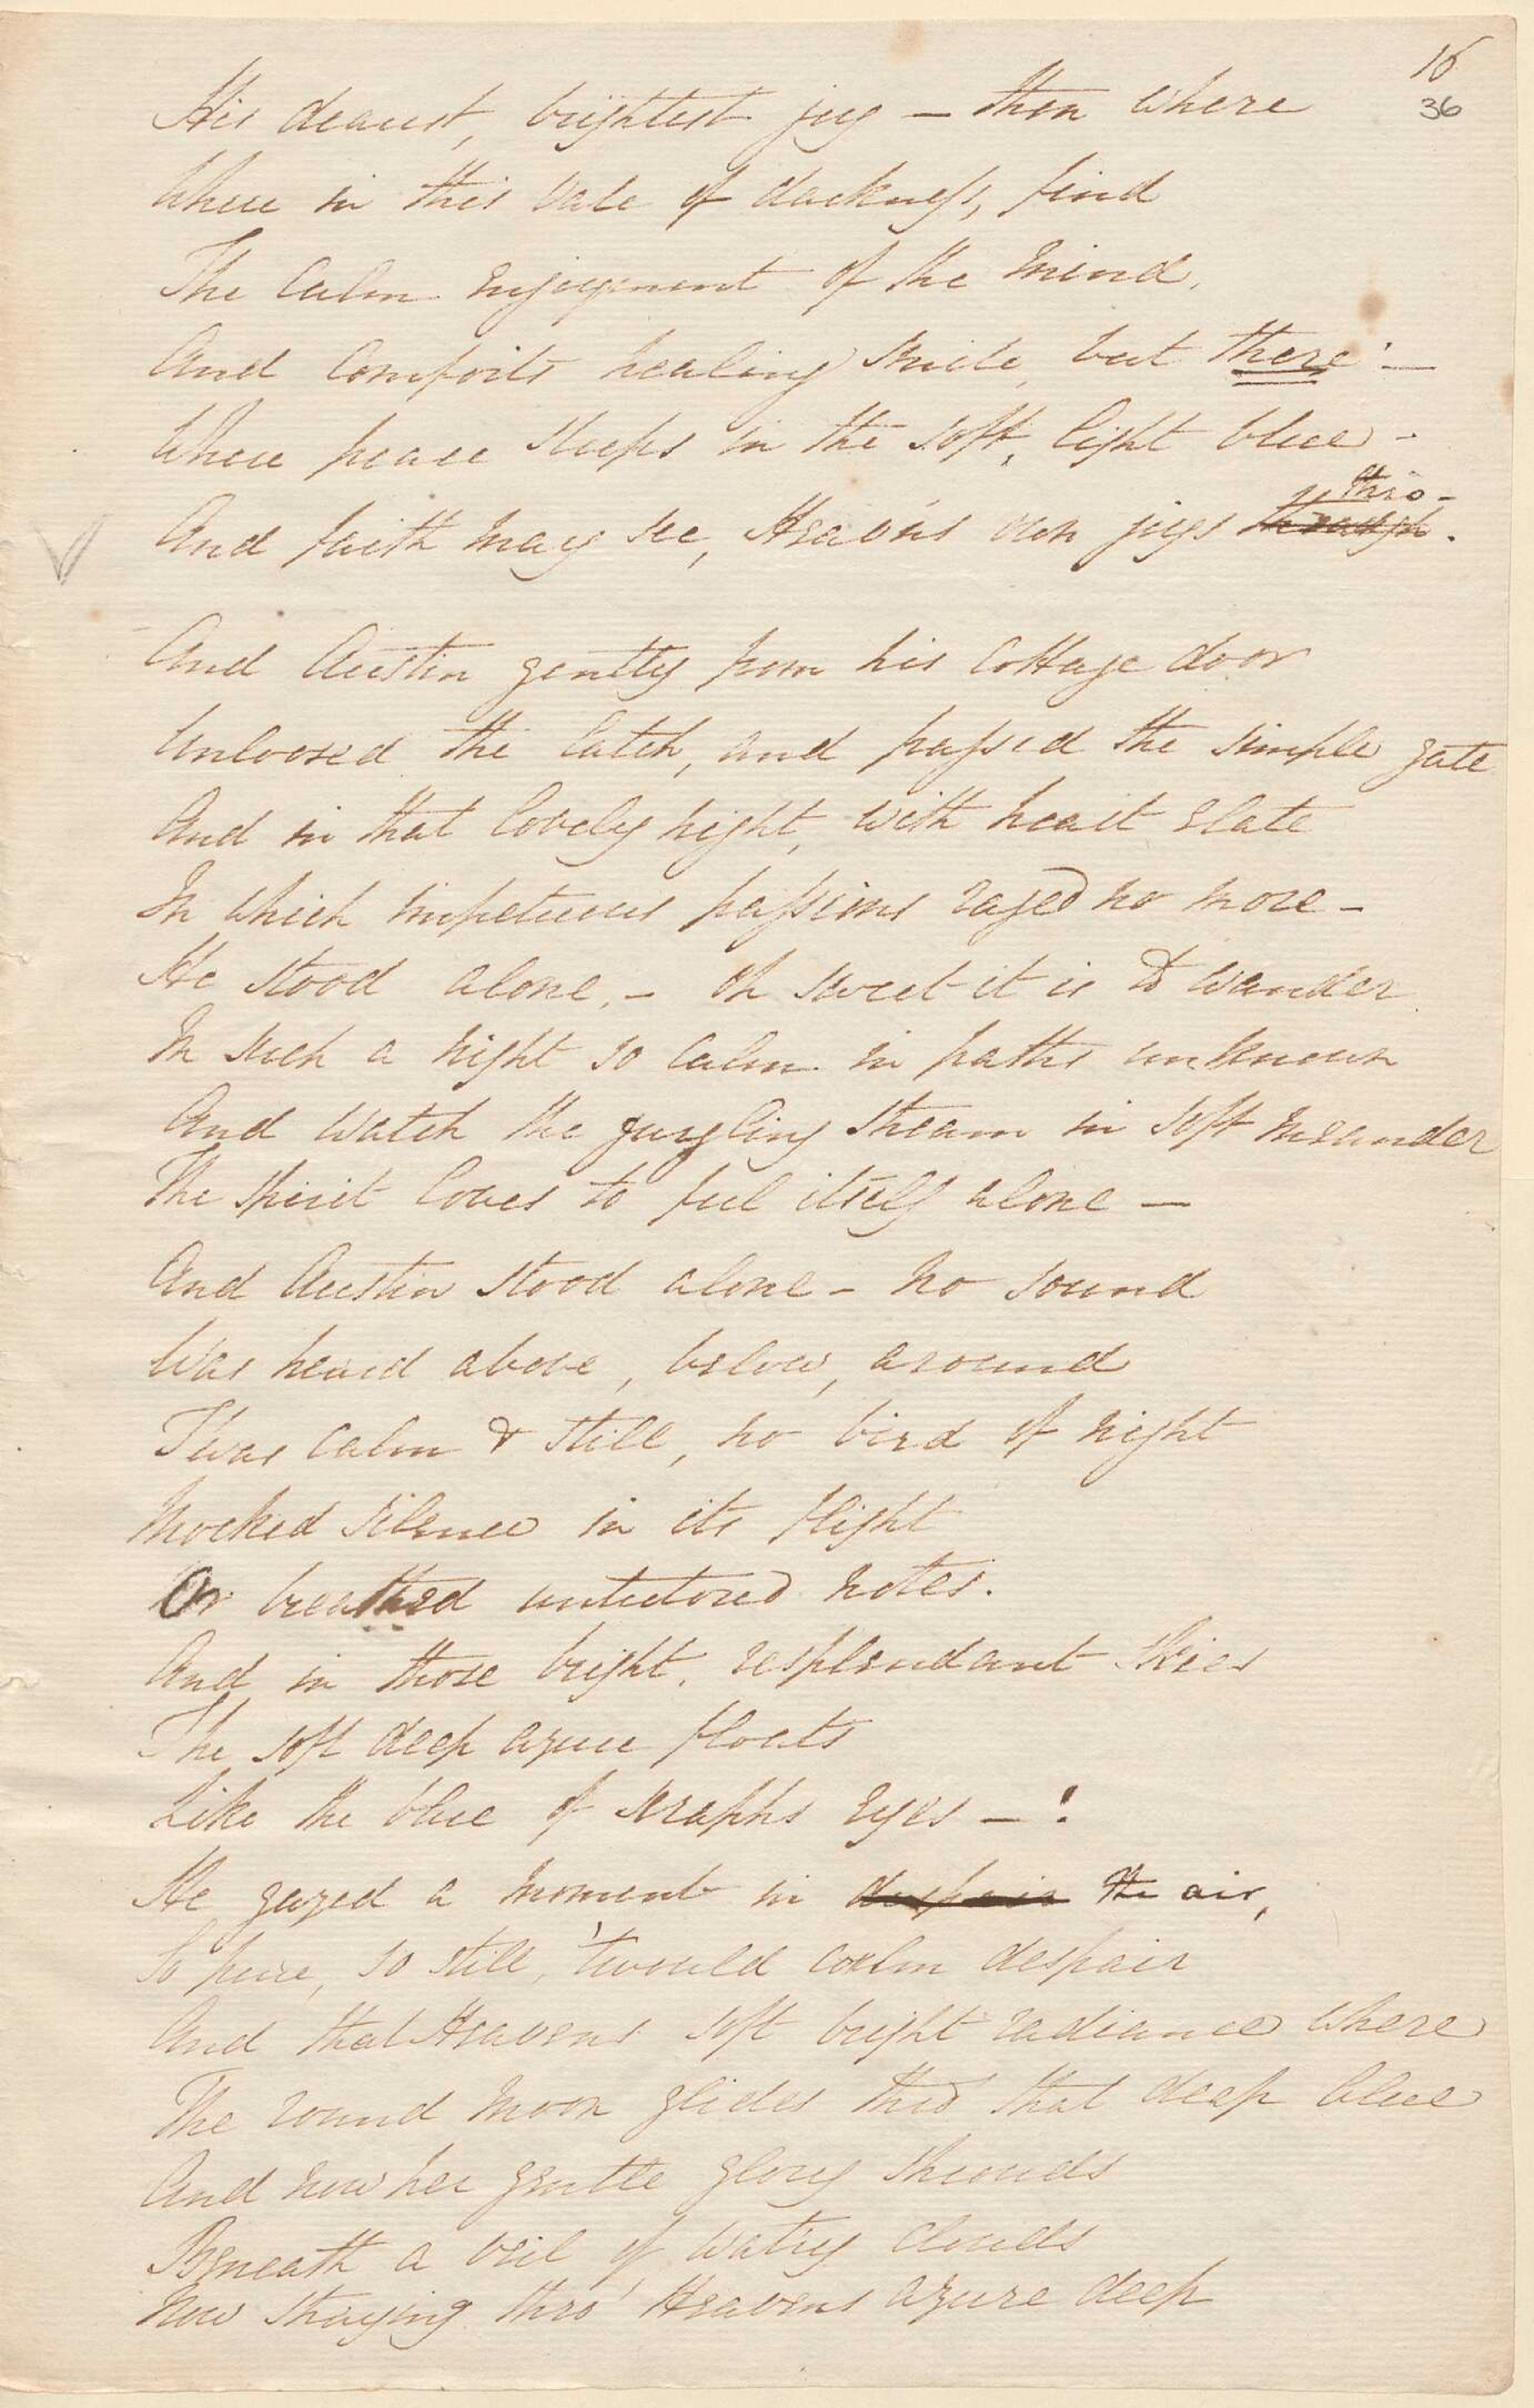 16
36
His dearest, brightest joy – then where
Where in this vale of darkness, find
The calm enjoyment of the mind,
And Comforts healing smile, but there! –
Where peace sleeps in the soft, light blue –
thro –
And faith may see, Heav'ns own joys through.
And Austin gently from his cottage door
Unloosed the latch, and passed the simple gate
And in that lovely night, with heart elate
In which impetuous passions raged no more –
He stood alone, – oh sweet it is to wander
In such a night so calm in paths unknown
And watch the gurgling stream in soft meander
The spirit loves to feel itself alone –
And Austin stood alone – no sound
Was heard above, below, around
Twas calm & still, no bird of night
Mocked silence in its flight
Or breathed untutored notes.
And in those bright, resplendant skies
The soft deep azure floats
Like the blue of seraphs eyes – !
He gazed a moment in despair the air,
So pure, so still, 'twould calm despair
And that Heavens soft bright radiance where
The round moon glides thro that deep blue
And now her gentle glory shrouds
Beneath a veil of watry clouds
Now straying thro' Heavens azure deep